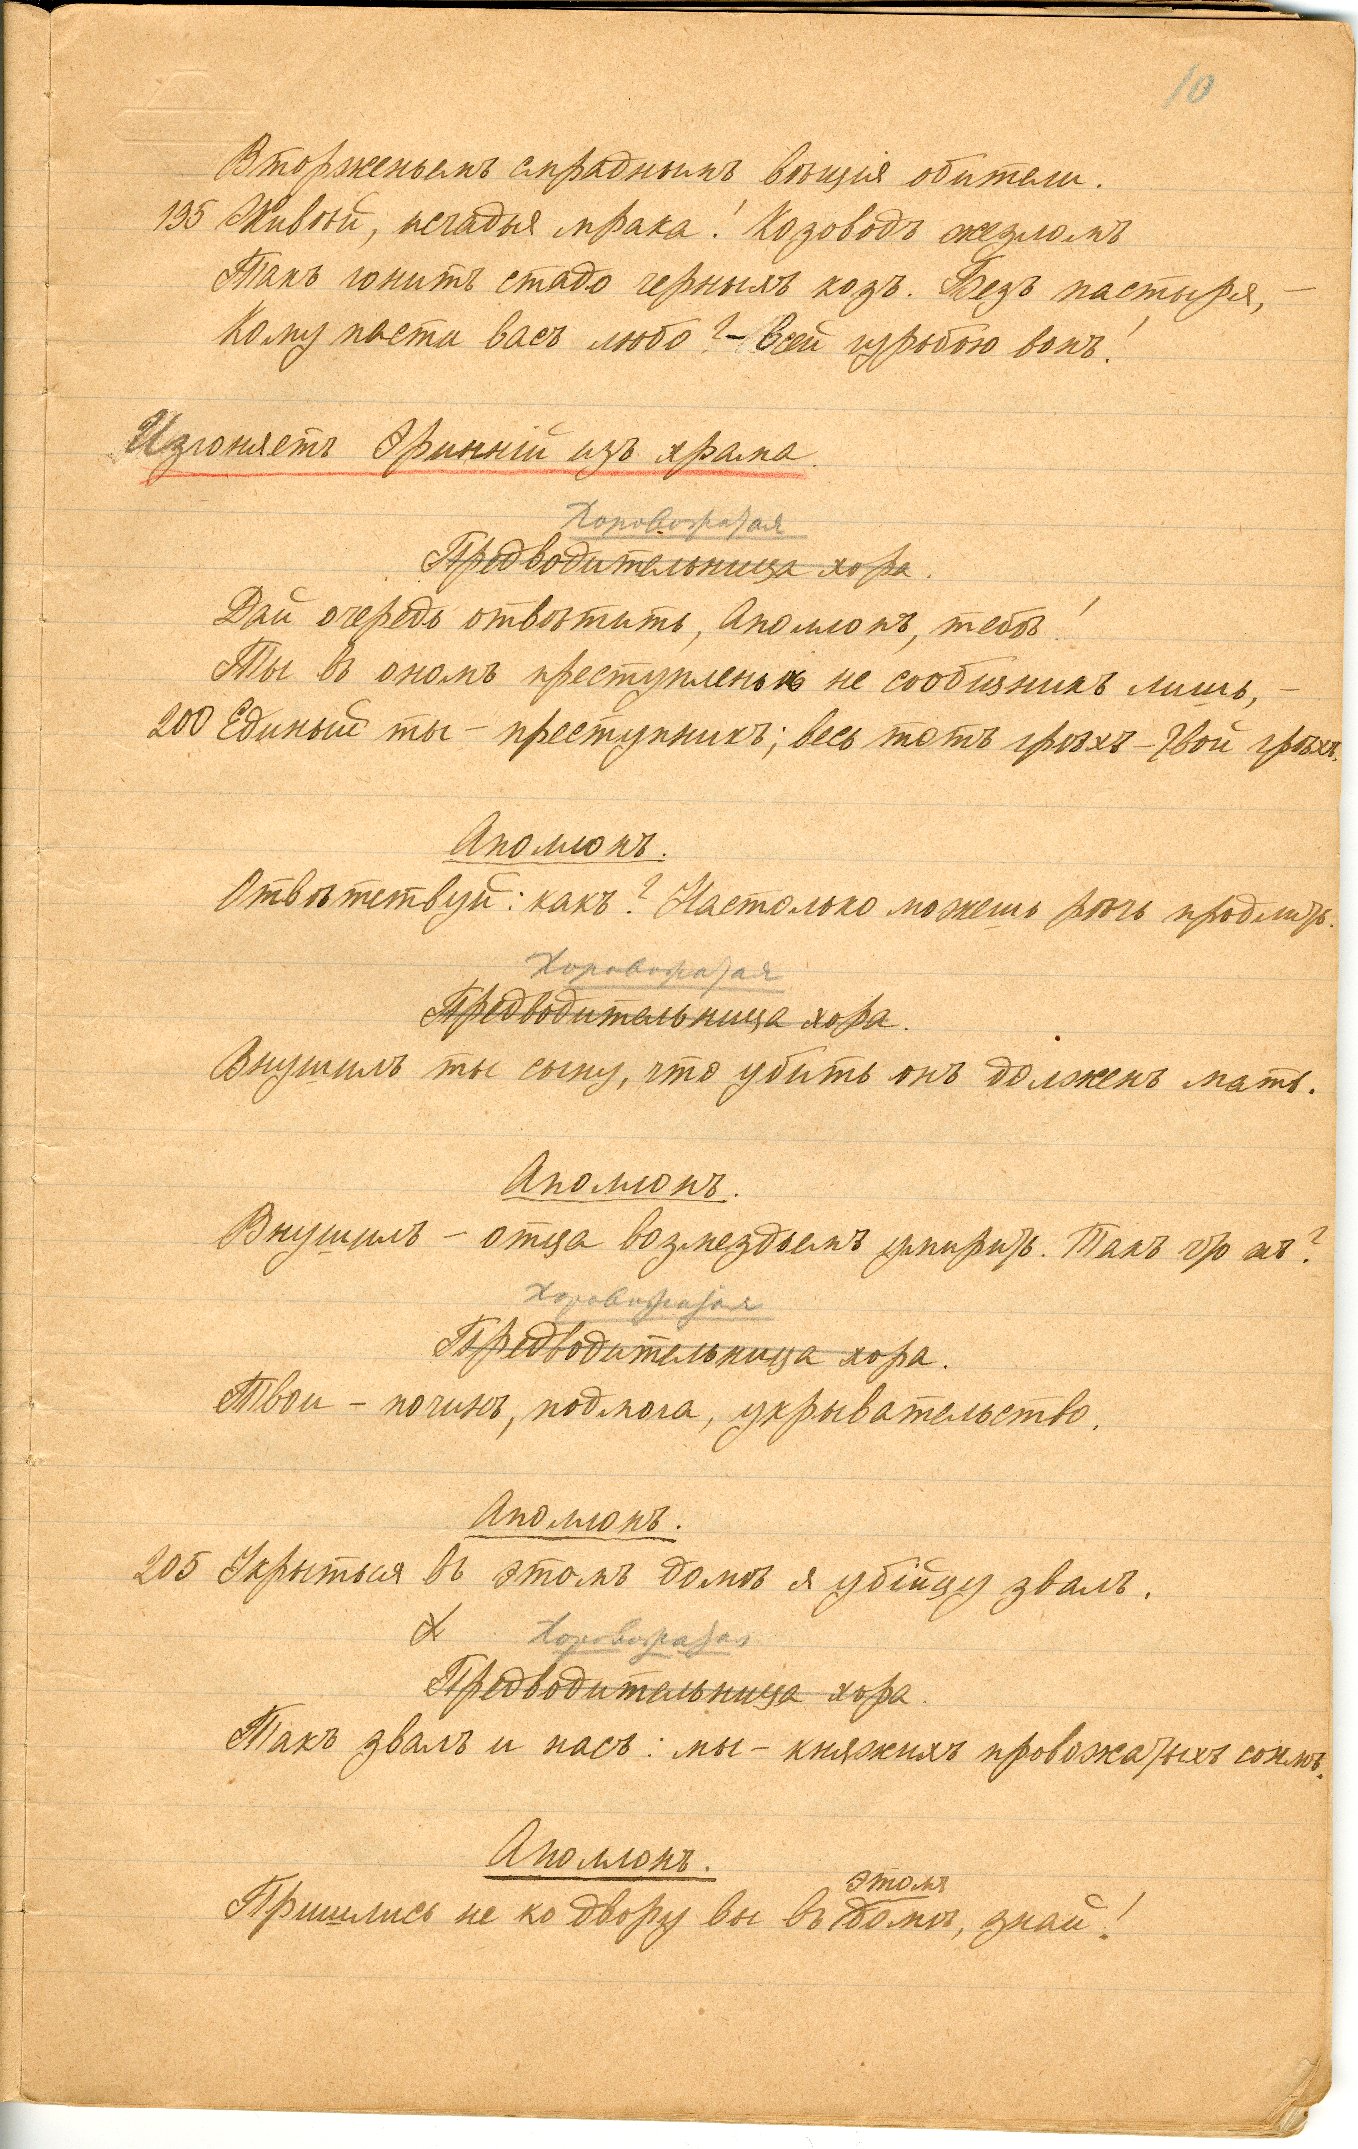 10
Вторженьемъ смраднымъ вѣщія обители.
195 Живѣй, исчадья мрака! Козоводъ жезломъ
Такъ гонитъ стадо черныхъ козъ. Безъ пастыря, –
Кому пасти васъ любо? – Всей гурьбою вонъ!
Изгоняетъ Эринній изъ храма.
Хоровожатая
Предводительница хора.
Дай очередь отвѣтить, Аполлонъ, тебѣ!
Ты въ ономъ преступленьи не сообщникъ лишь, –
200 Единый ты – преступникъ; весь тотъ грѣхъ – твой грѣхъ.
Аполлонъ.
Отвѣтствуй: какъ? Настолько можешь рѣчь продлить.
Хоровожатая
Предводительница хора.
Внушилъ ты сыну, что убить онъ долженъ мать.
Аполлонъ.
Внушилъ – отца возмездьемъ умирить. Такъ что жъ?
Хоровожатая
Предводительница хора.
Твои – починъ, подмога, укрывательство.
Аполлонъ.
205 Укрыться въ этомъ домѣ я убійцу звалъ.
Х Хоровожатая
Предводительница хора.
Такъ звалъ и насъ: мы – княжихъ провожатыхъ сонмъ.
Аполлонъ.
этомъ
Пришлись не ко двору вы въ домѣ, знай!